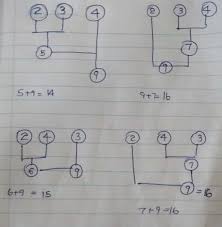 2 3 4
5
9
5+9 = 14
2 3 4
7
9
9+7=16
2 4 3
6
9
6+9 = 15
2 4 3
7
9 =16
7+9=16